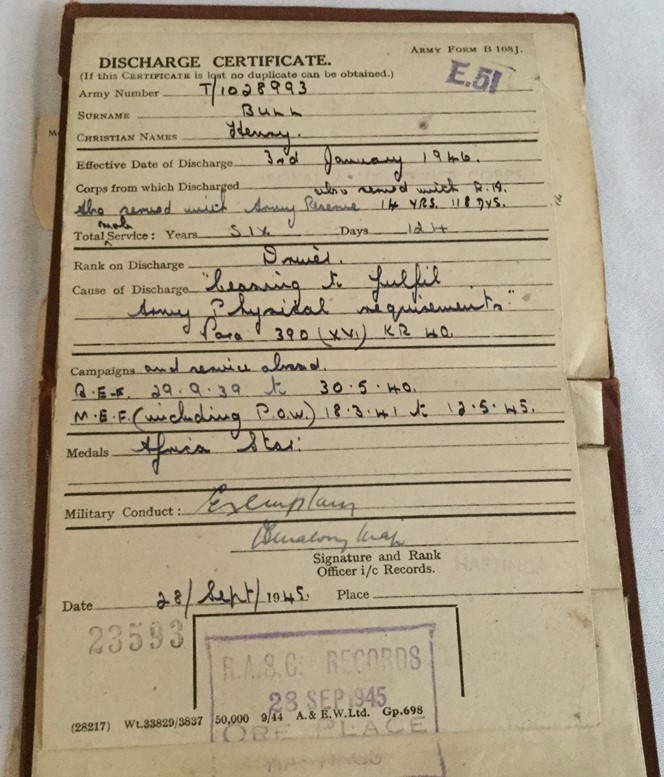 ARMY FORM B 108J.
DISCHARGE CERTIFICATE.
E.51
(If this CERTIFICATE is lost no duplicate can be obtained.)
Army Number T/1028993
SURNAME BULL
CHRISTIAN NAMES Henry.
Effective Date of Discharge 3rd January 1946.
Corps from which Discharged also served with R.A.
Also served with Army Reserve 14 YRS. 118 DYS.
mob
Total Service: Years SIX Days 124
Rank on Discharge Driver.
Cause of Discharge "Ceasing to fulfil
Army Physical requirements"
Para 390 (XVI) KR 40.
Campaigns and service abroad.
B.E.F. 29.9.39 to 30.5.40.
M.E.F. (including P.O.W.) 18.3.41 to 12.5.45.
Medals Africa Star.
Military Conduct: Exemplary
Signature and Rank
Officer i/c Records.
HASTINGS
Date 28/Sept/1945. Place
23593
R.A.S.C. RECORDS
28 SEP 1945
(28217) Wt.33829/3837 50,000 9/44 A. & E.W.Ltd. Gp.698
ORE PLACE